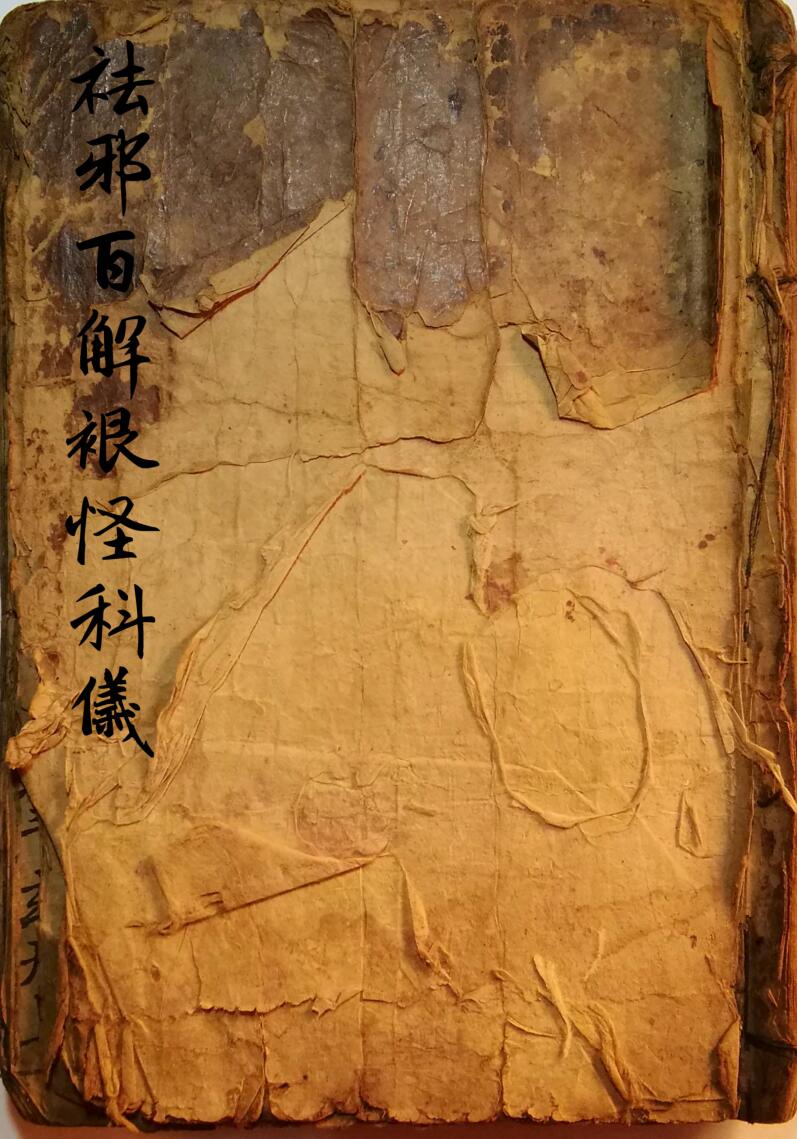 祛邪百解裉怪科儀